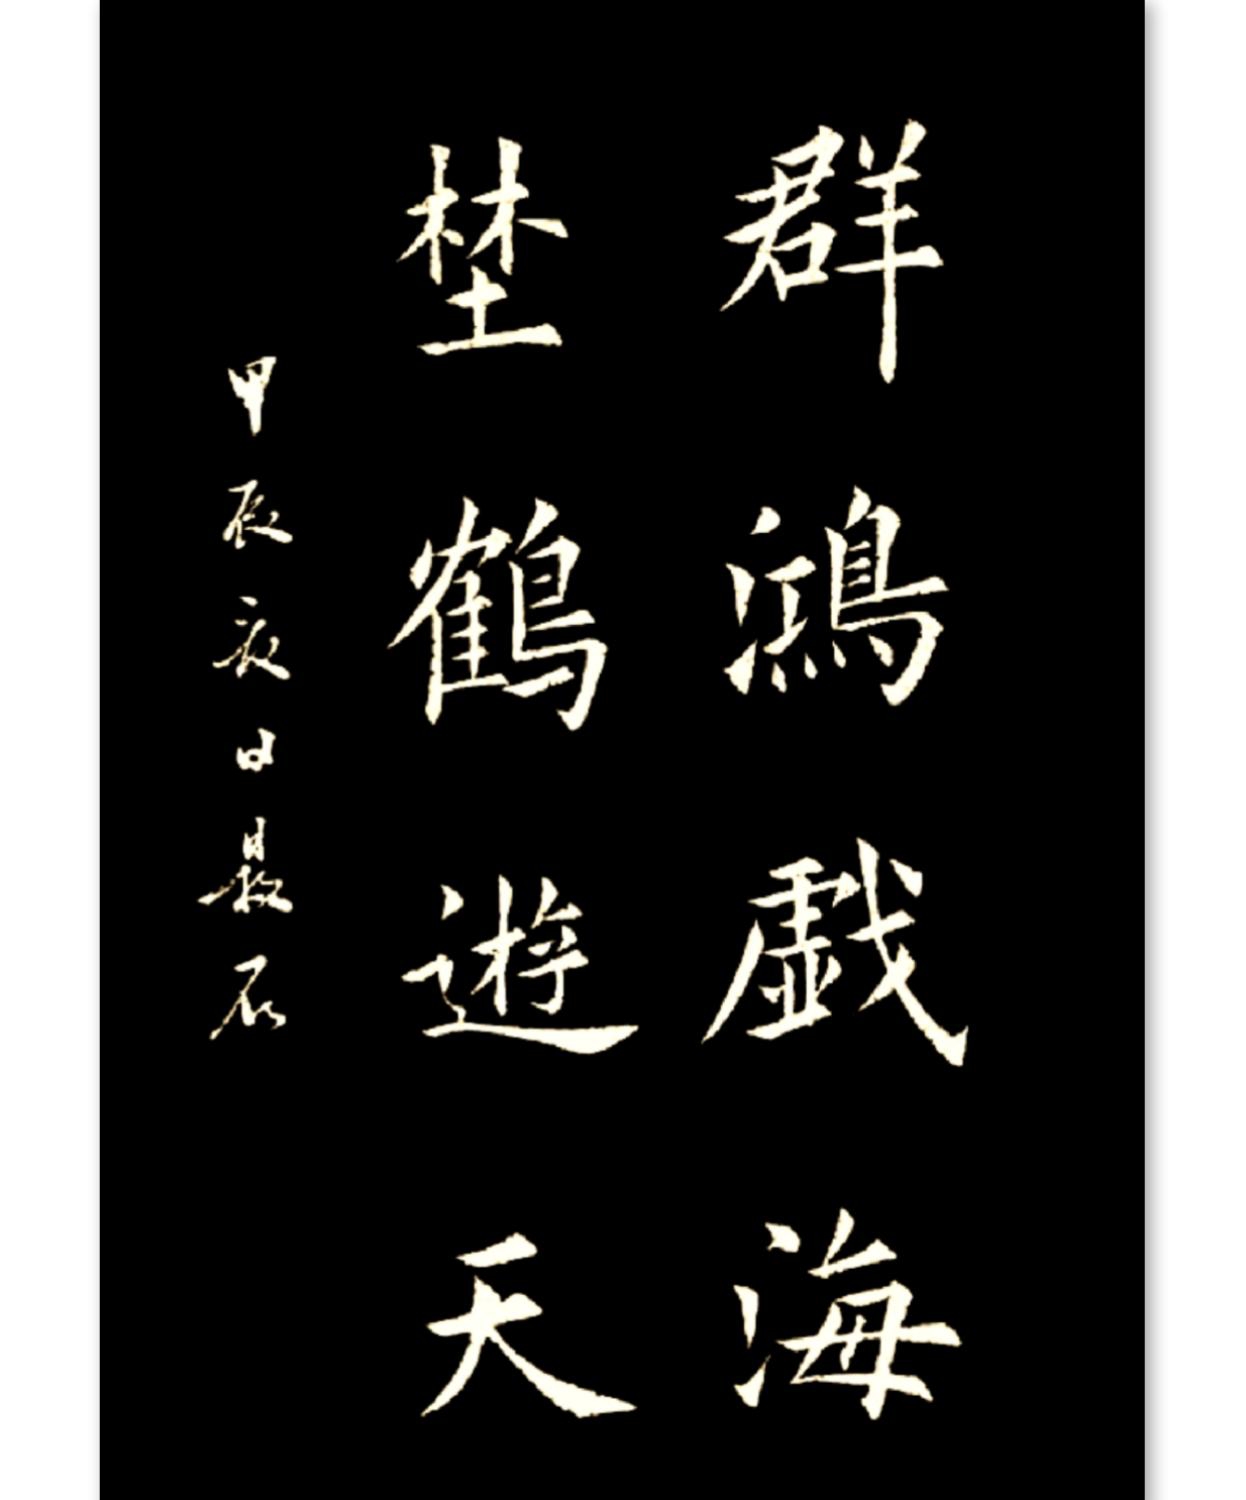 群鴻戯海
埜鶴遊天
甲辰夜日最石